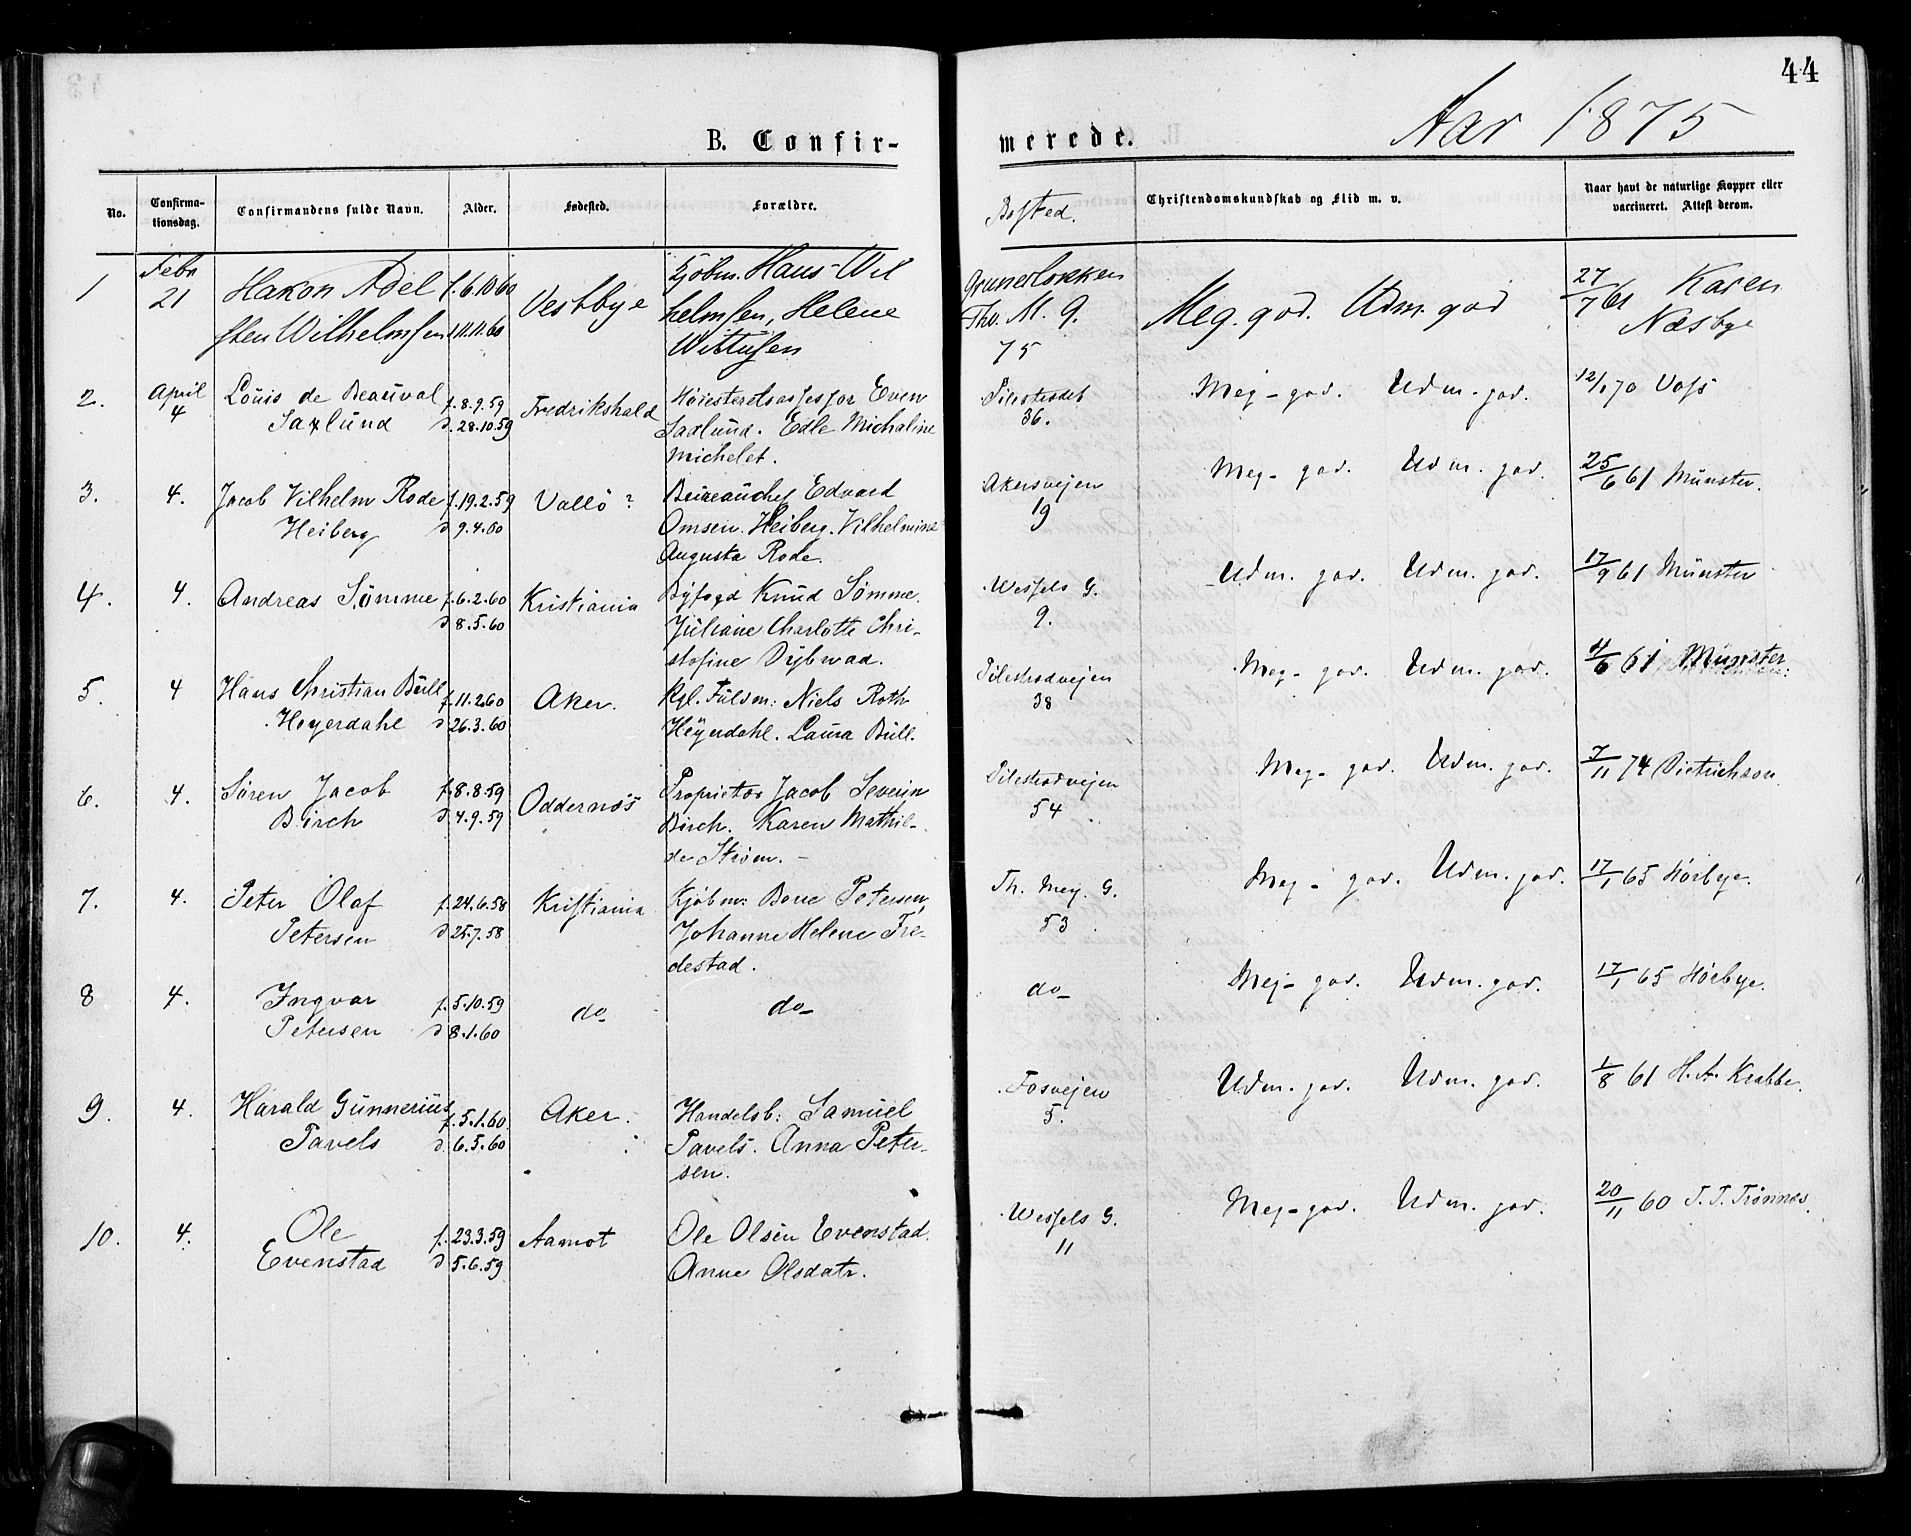 44
Aar 1875
B. Confir-
merede.
No.
Confirma-
tionsdag.
Confirmandens fulde Navn.
Alder.
Fødested.
Forældre.
Bosted.
Christendomskundskab og Flid m. v.
Naar havt de naturlige Kopper eller
vaccineret. Attest derom.
1 Febr 21 Hakon Adel f. 6.10.60 Vestbye Kjøbm. Hans Wil Grunerløkken Meg. god. Udm. god 27/7 61 Karen
sten Wilhelmsen d 11.11.60 helmsen, Helene Thv. M. G. Næsbye
Wittusen 75
2. April 4 Louis de Beauval f. 8.9.59 Fredrikshald Høiesteretsassessor Even Pilestrædet Meg- god. Udm. god. 12/1 70 Voss
Saxlund d. 28.10.59 Saxlund. Edle Michaline 36.
Michelet.
3. 4. Jacob Vilhelm Rode f. 19.2.59 Vallö? Bureauchef Edvard Akersvejen Meg- god. Udm. god. 25/6 61 Münster.
Heiberg d 9.4.60 Omsen Heiberg. Vilhelmine 19
Augusta Rode.
4. 4. Andreas Sømme f. 6.2.60 Kristiania Byfogd Knud Sømme. Wessels G. Udm. god. Udm. god. 17/9 61 Münster
d 8.5.60 Juliane Charlotte Chri- 9.
stofine Dybwad.
5. 4 Hans Christian Bull f. 11.2.60 Aker. Kgl. Fuldm: Niels Roth Pilestrædvejen Meg- god. Udm. god. 11/6 61 Münster.
Heyerdahl d 26.3.60 Heyerdahl. Laura Bull. 38
6. 4. Søren Jacob f. 8.8.59 Oddernös Proprietær Jacob Severin Pilestrædvejen Meg- god. Udm. god. 7/11 74 Dietrichson.
Birch d 4.9.59 Birch. Karen Mathil- 54
de Strøm. -
7. 4. Peter Olaf f. 24.6.58 Kristiania Kjøbm: Bone Petersen, Th. Mey. G. Meg- god. Udm. god. 17/1 65 Hørbye.
Petersen d 25.7.58 Johanne Helene Fre- 53
destad.
8 4. Ingvar f. 5.10.59 do do do Meg- god. Udm. god. 17/1 65 Hørbye.
Petersen d 8.1.60
9. 4. Harald Gunnerius f. 5.1.60 Aker. Handelsb: Samuel Fosvejen Udm. god. Udm. god. 1/8 61 H. A. Krabbe.
Pavels d. 6.5.60 Pavels. Anna Peter- 5.
sen.
10. 4. Ole f. 23.3.59 Aamot Ole Olsen Evenstad. Wessels G. Meg-god. Udm. god. 20/11 60 T. T. Trønnes.
Evenstad d 5.6.59 Anne Olsdatr. 11